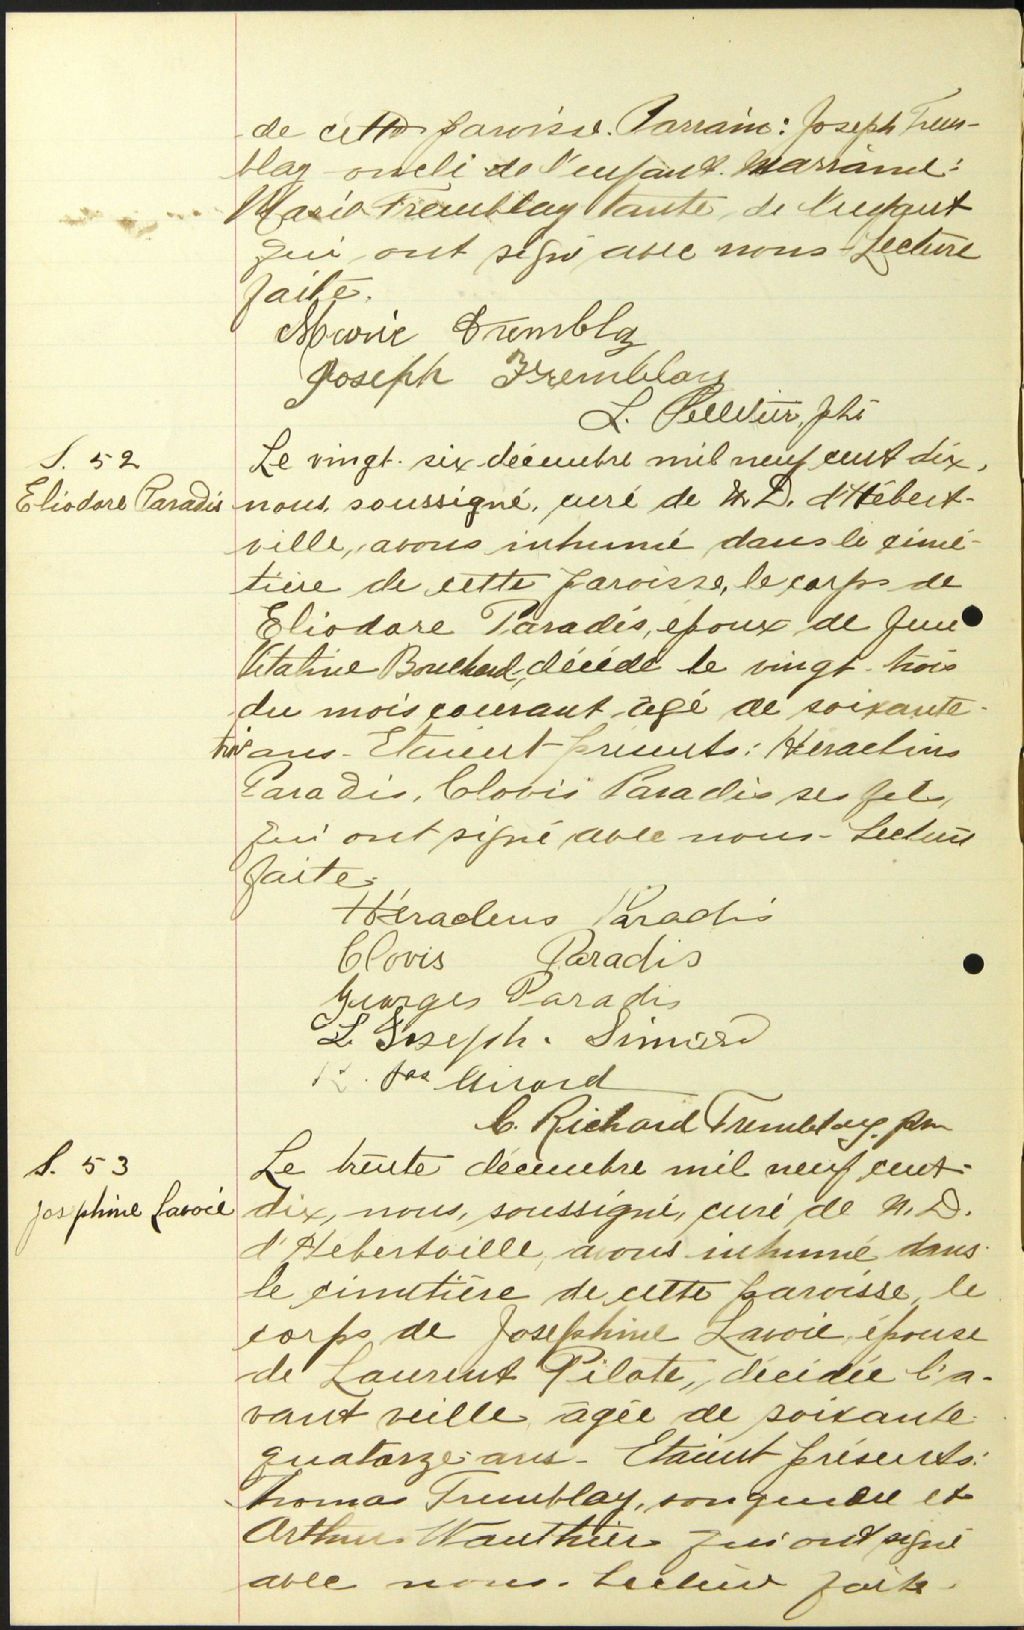 de cette paroisse. Parrain: Joseph Trem-
blay oncle de l'enfant. Marraine:
Marie Tremblay tante de l'enfant
qui ont signé avec nous - Lecture
faite.
Marie Tremblay
Joseph Tremblay
L. Pelletier, ptr
S. 52
Eliodore Paradis
Le vingt-six décembre mil neuf cent dix,
nous, soussigné, curé de N.D. d'Hébert-
ville, avons inhumé dans le cime-
tière de cette paroisse, le corps de
Eliodore Paradis, époux de feue
Vitaline Bouchard, décédé le vingt-trois
du mois courant âgé de soixante-
ans - Etaient présents: Héraclius
Paradis, Clovis Paradis ses fils,
qui ont signé avec nous - Lecture
faite.
Héracleus Paradis
Clovis Paradis
Georges Paradis
L. Joseph. Simard
Jos Girard
C. Richard Tremblay, ptr
S. 53
Josephine Lavoie
Le trente décembre mil neuf cent-
dix, nous, soussigné, curé de N.D.
d'Hébertville, avons inhumé dans
le cimetière de cette paroisse, le
corps de Josephine Lavoie, épouse
de Laurent Pilote, décédée l'a-
vant veille âgée de soixante-
quatorze ans - Etaient présents:
Thomas Tremblay, son gendre et
Arthur Wauthier qui ont signé
avec nous. Lecture faite.